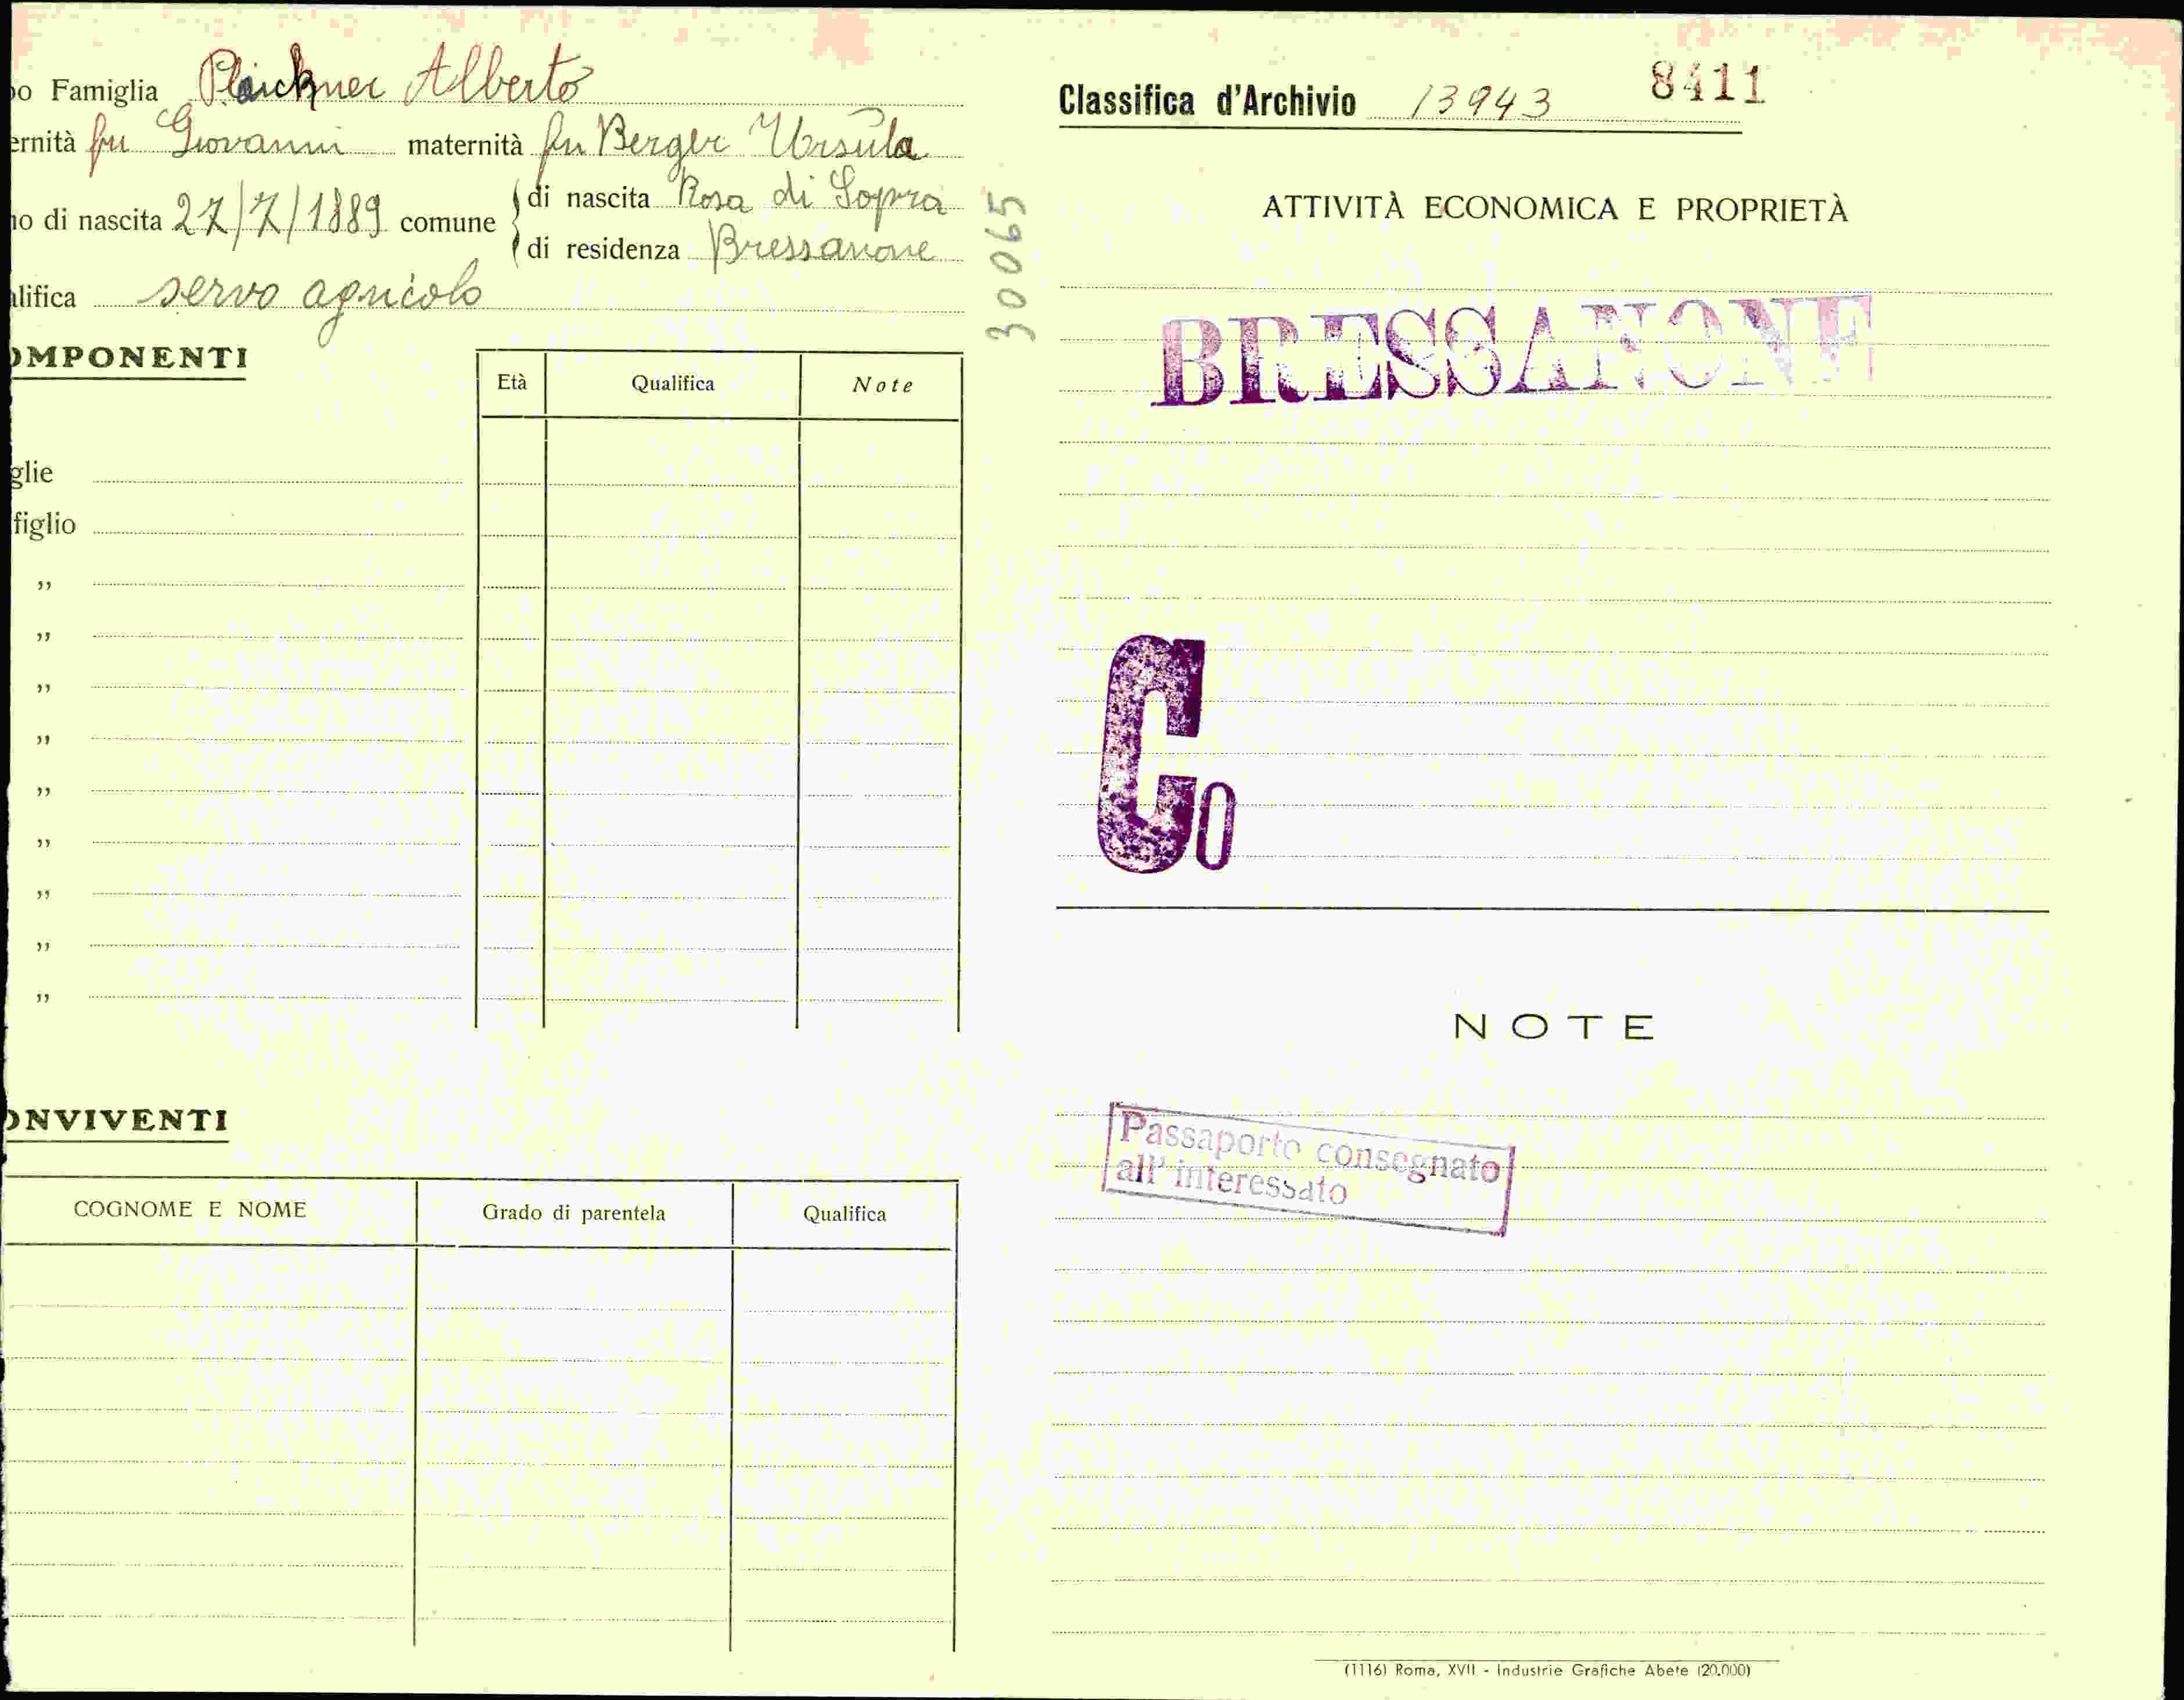 o Famiglia Plaickner Alberto
ernità fu Giovanni maternità fu Berger Ursula
no di nascita 27/7/1889 comune di nascita Rosa di Sopra
di residenza Bressanone
alifica servo agricolo
30065
OMPONENTI
Età Qualifica Note
glie
figlio
„
„
„
„
„
„
„
„
„
ONVIVENTI
COGNOME E NOME Grado di parentela Qualifica
Classifica d'Archivio 13943 8411
ATTIVITÀ ECONOMICA E PROPRIETÀ
BRESSANONE
Co
NOTE
Passaporto consegnato
all'interessato
(1116) Roma, XVII - Industrie Grafiche Abete (20.000)